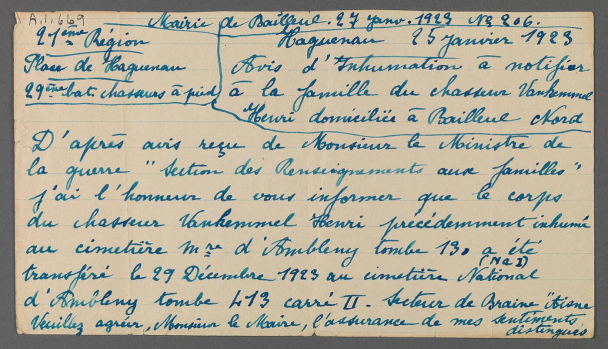 A.1.669
Mairie de Bailleul. 27 Janv. 1923 No 206.
21ème Région
Place de Haguenau
29ème bat. chasseurs à pied
Haguenau 25 Janvier 1923
Avis d'Inhumation à notifier
à la famille du chasseur Vankemmel
Henri domiciliée à Bailleul Nord
D'après avis reçue de Monsieur le Ministre de
la guerre "Section des Renseignements aux familles"
j'ai l'honneur de vous informer que le corps
du chasseur Vankemmel Henri précédemment inhumé
au cimetière mre d'Ambleny tombe 130 a été
transféré le 29 Décembre 1923 au cimetière National (No I)
d'Ambleny tombe 413 carré II. Secteur de Braine "Aisne
Veuillez agréer, Monsieur le Maire, l'assurance de mes sentiments
distingués